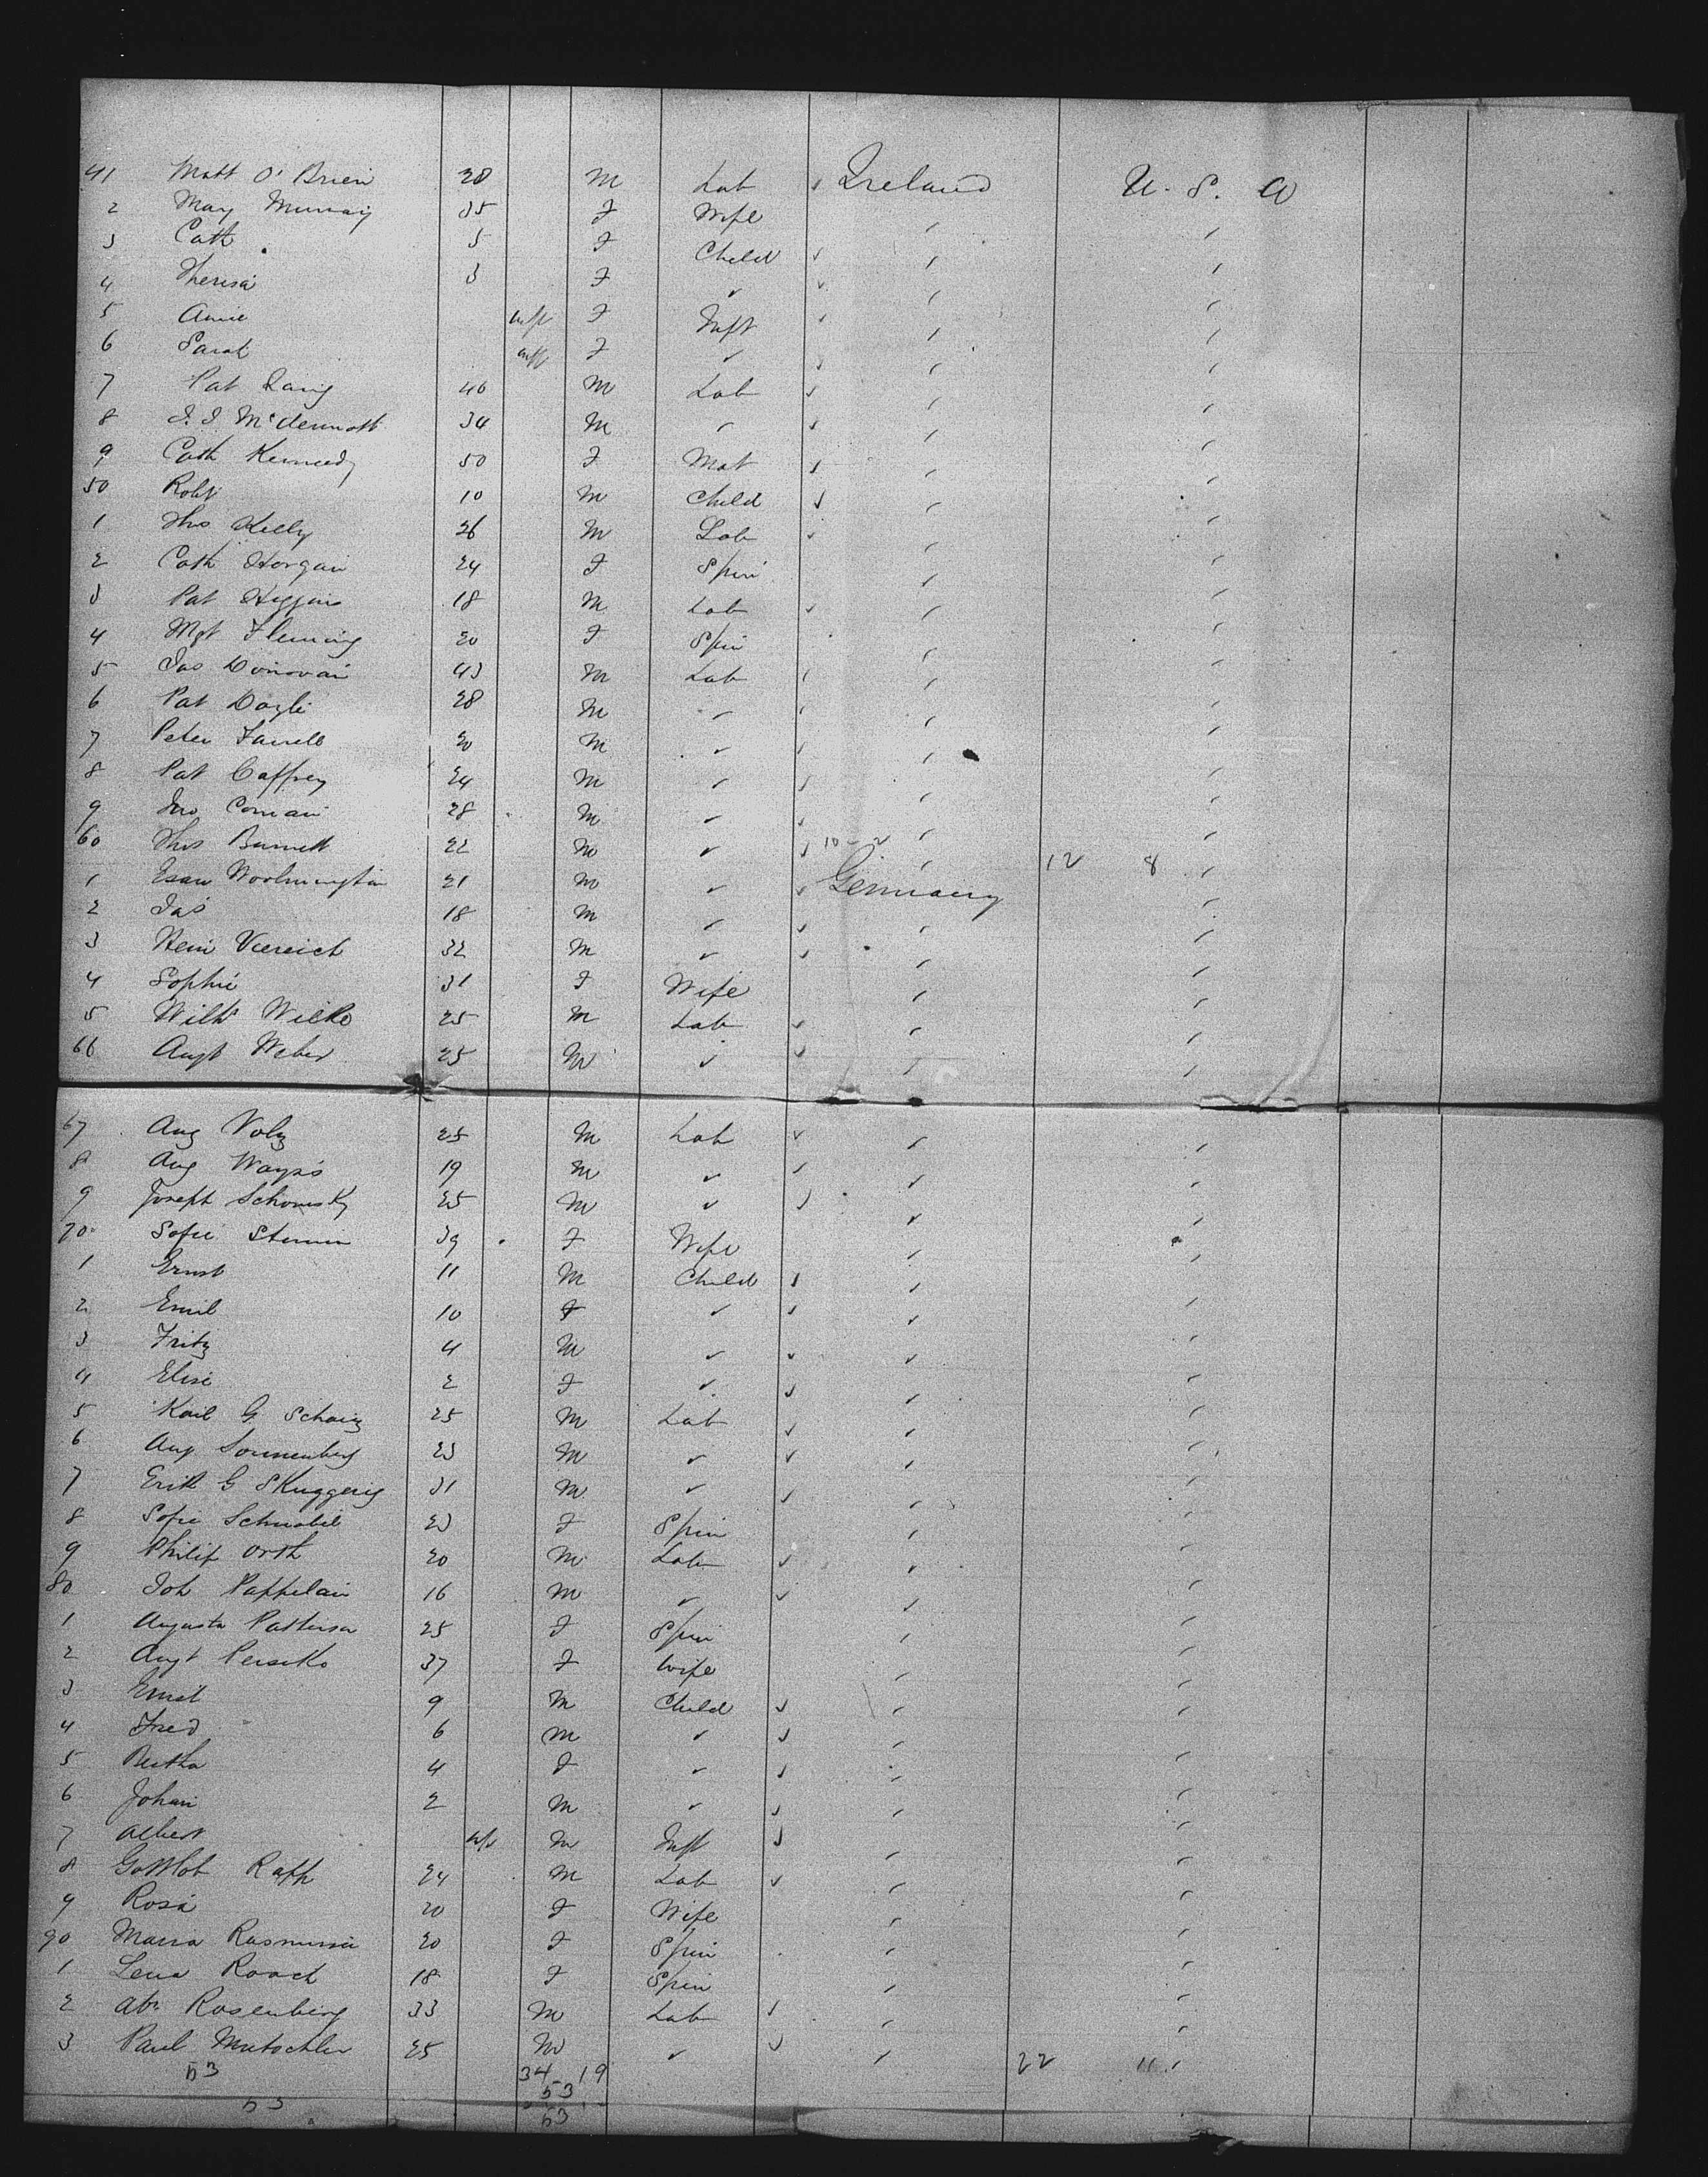 41 Matt O'Brien 28 M Lab ✓ Ireland U. S. A
2 May Murray 35 F Wife
3 Cath 5 F Child ✓
4 Theresa 3 F ✓ ✓
5 Annie inft F Inft ✓
6 Sarah inft F ✓ ✓
7 Pat 40 M Lab ✓
8 McDermott 34 M ✓ ✓
9 Cath Kennedy 50 F Mat ✓
50 Robt 10 M Child ✓
1 Thos Kelly 26 M Lab ✓
2 Cath Horgan 24 F Spin
3 Pat Higgins 18 M Lab ✓
4 Mgt Fleming 20 F Spin
5 Jas Donovan 43 M Lab
6 Pat Doyle 28 M ✓
7 Peter Farrell 20 M ✓ ✓
8 Pat Caffrey 24 M ✓ ✓
9 Jno 28 M ✓ ✓
60 Thos Burnett 22 M ✓ ✓ 10 - 2 12 8
1 Esau Woolmington 21 M ✓ ✓ Germany
2 Jas 18 M ✓ ✓
3 Hein Viereick 32 M ✓ ✓
4 Sophie 31 F Wife
5 Wilh Wilke 25 M Lab ✓
66 Augt Weber 25 M ✓ ✓
67 Aug Volz 25 M Lab ✓
8 Aug 19 M ✓
9 Joseph Schomsky 25 M ✓ ✓
70 Sofie 39 F Wife
1 Ernst 11 M Child ✓
2 Emil 10 F ✓ ✓
3 Fritz 4 M ✓ ✓
4 Elise 2 F ✓ ✓
5 Karl G. 25 M Lab ✓
6 Aug. Sonnenberg 23 M ✓ ✓
7 Erik G 31 M ✓ ✓
8 Sofie Schnabel 23 F Spin
9 Philip Orth 20 M Lab ✓
80 Joh 16 M ✓ ✓
1 Augusta 25 F Spin
2 Augt Persiko 37 F Wife
3 Ernst 9 M Child ✓
4 Fred 6 M ✓ ✓
5 Bertha 4 F ✓ ✓
6 Johan 2 M ✓ ✓
7 Albert inft M Inft ✓
8 Gottlob Rapp 24 M Lab ✓
9 Rosa 20 F Wife
90 Maria Rasmussen 20 F Spin
1 Lena 18 F Spin
2 Abr Rosenberg 33 M Lab ✓
3 Paul Mutschler 25 M ✓ ✓ 22 11
53 34 19
53
53 53